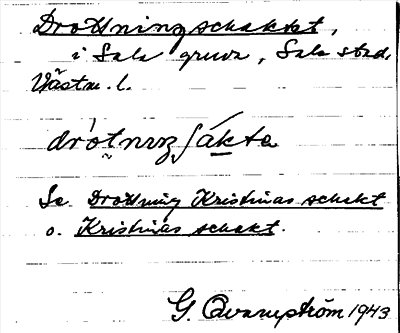 Drottningschaktet,
i Sala gruva, Sala stad,
Västm. l.
Se Drottning Kristinas schakt
o. Kristinas schakt.
G. Qvarnström 1943